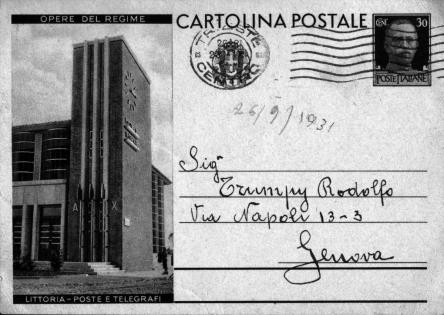 OPERE DEL REGIME
CARTOLINA POSTALE
CENT. 30
POSTE ITALIANE
TRIESTE
CENTRO
26/9/1931
A X
Sig.r
Trumpy Rodolfo
Via Napoli 13-3
Genova
LITTORIA - POSTE E TELEGRAFI